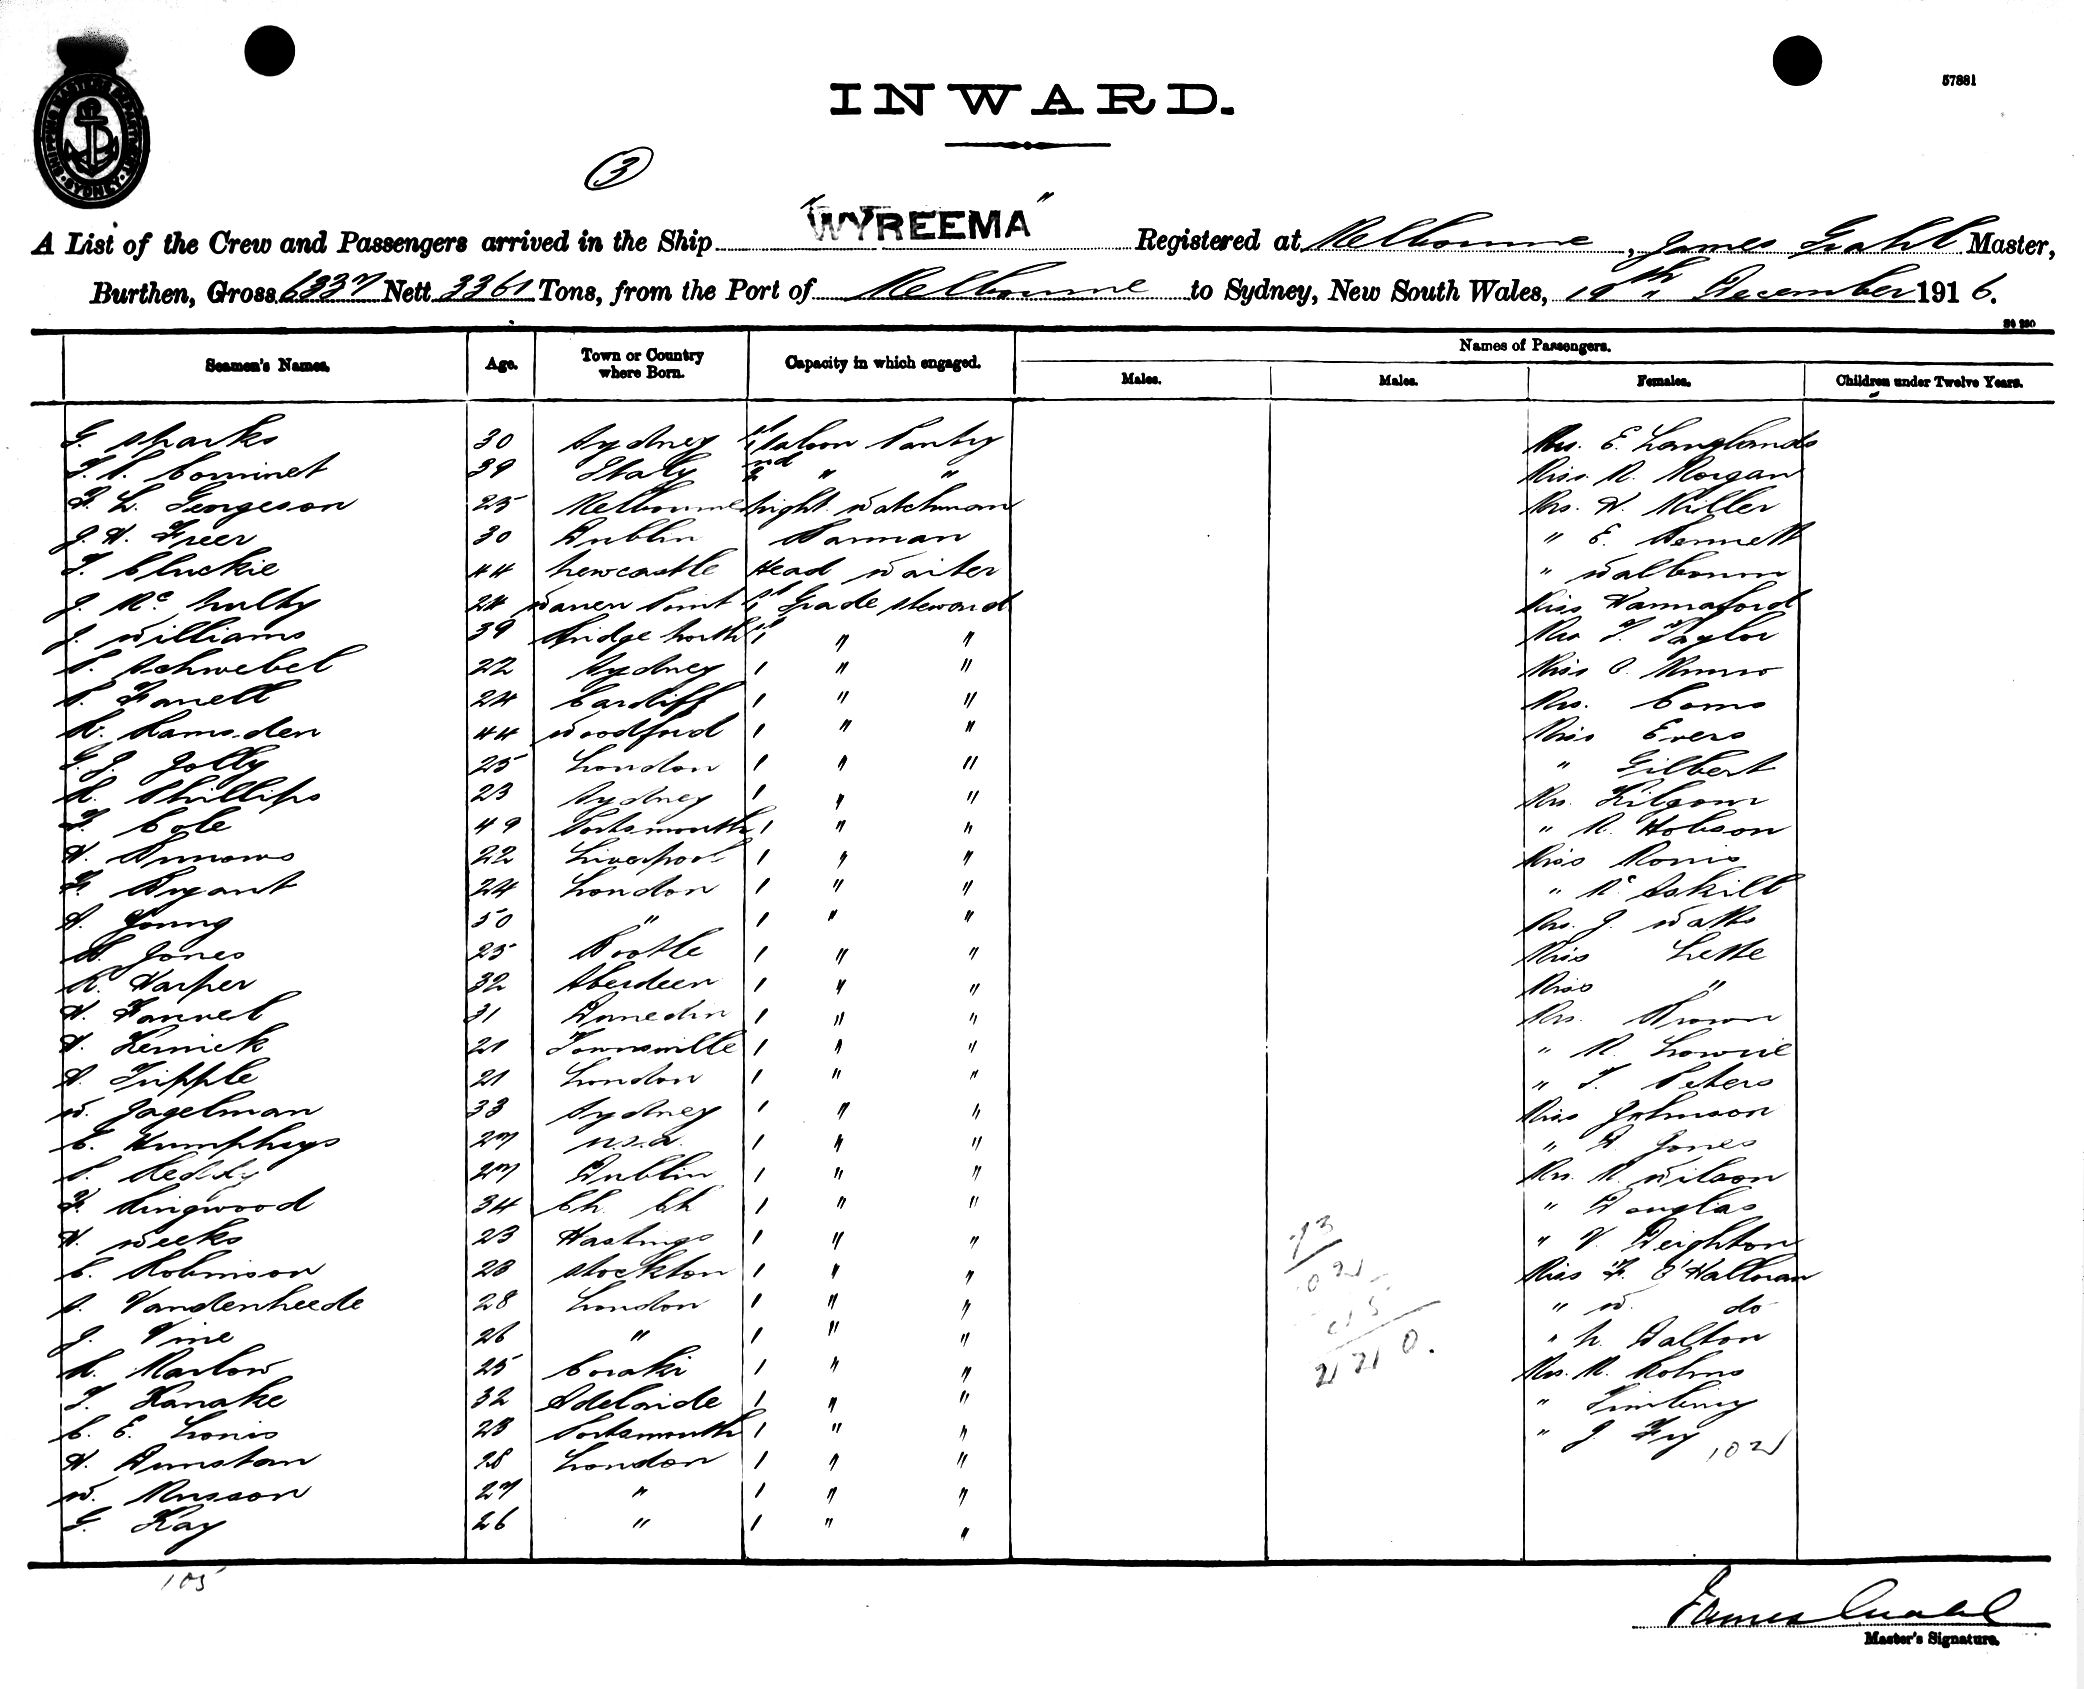 57881
INWARD.
3
SHIPPING MASTER'S DEPARTMENT SYDNEY
A List of the Crew and Passengers arrived in the Ship "WYREEMA" Registered at Melbourne, James Grahl Master,
Burthen, Gross 6337 Nett 3361 Tons, from the Port of Melbourne to Sydney, New South Wales, 19th December 1916.
Seamen's Names. Age. Town or Country where Born. Capacity in which engaged. Names of Passengers.
Males. Males. Females. Children under Twelve Years.
G. Sharks 30 Sydney 1st Saloon Pantry Mrs. E. Langlands
39 Italy 2nd " " Miss. M. Morgan
F. L. Georgeson 25 Melbourne Night Watchman Mrs. W. Miller
J. H. Freer 30 Dublin Barman " E. Bennett
T. Cluckie 44 Newcastle Head Waiter "
J. McNulty 24 Warren Point 1st Grade Steward Miss Hannaford
J. Williams 39 Bridge North 1st " " Mrs T. Taylor
P. Schwebel 22 Sydney 1 " " Miss C. Munro
P. Farrell 24 Cardiff 1 " " Mrs.
R. Ramsden 44 Woodford 1 " " Miss Evers
G. J. Jolly 25 London 1 " " " Gilbert
R. Phillips 23 Sydney 1 " " Mrs. Kilgour
T. Cole 49 Portsmouth 1 " " " M. Hobson
H. Burrows 22 Liverpool 1 " " Miss
F. Bryant 24 London 1 " " " McAskill
H. Young 50 " 1 " " Mrs. J. Watts
H. Jones 25 Bootle 1 " " Miss Lette
R. Harper 32 Aberdeen 1 " " Miss "
H. 31 Dunedin 1 " " Mrs. Brown
H. 21 Townsville 1 " " " M. Lowrie
A. Tipple 21 London 1 " " " T. Peters
W. Jagelman 33 Sydney 1 " " Miss Johnson
C. Humphrys 27 U.S.A. 1 " " " D. Jones
P. Reddy 27 Dublin 1 " " Mrs. M. Wilson
F. Ringwood 34 Ch. Ch. 1 " " " Douglas
H. Weeks 23 Hastings 1 " " " V. Deighton
C. Robinson 28 Stockton 1 " " Miss F. O'Halloran
Vandenheede 28 London 1 " " " W. do
J. Vine 26 " 1 " " " N. Dalton
R. Marlow 25 Coraki 1 " " Mrs. M. Holms
T. Kanake 32 Adelaide 1 " " "
C. E. Lonis 28 Portsmouth 1 " " " J. Fry 102
H. Dunstan 28 London 1 " "
W. Musson 27 " 1 " "
G. Kay 26 " 1 " "
105
James Grahl
Master's Signature.